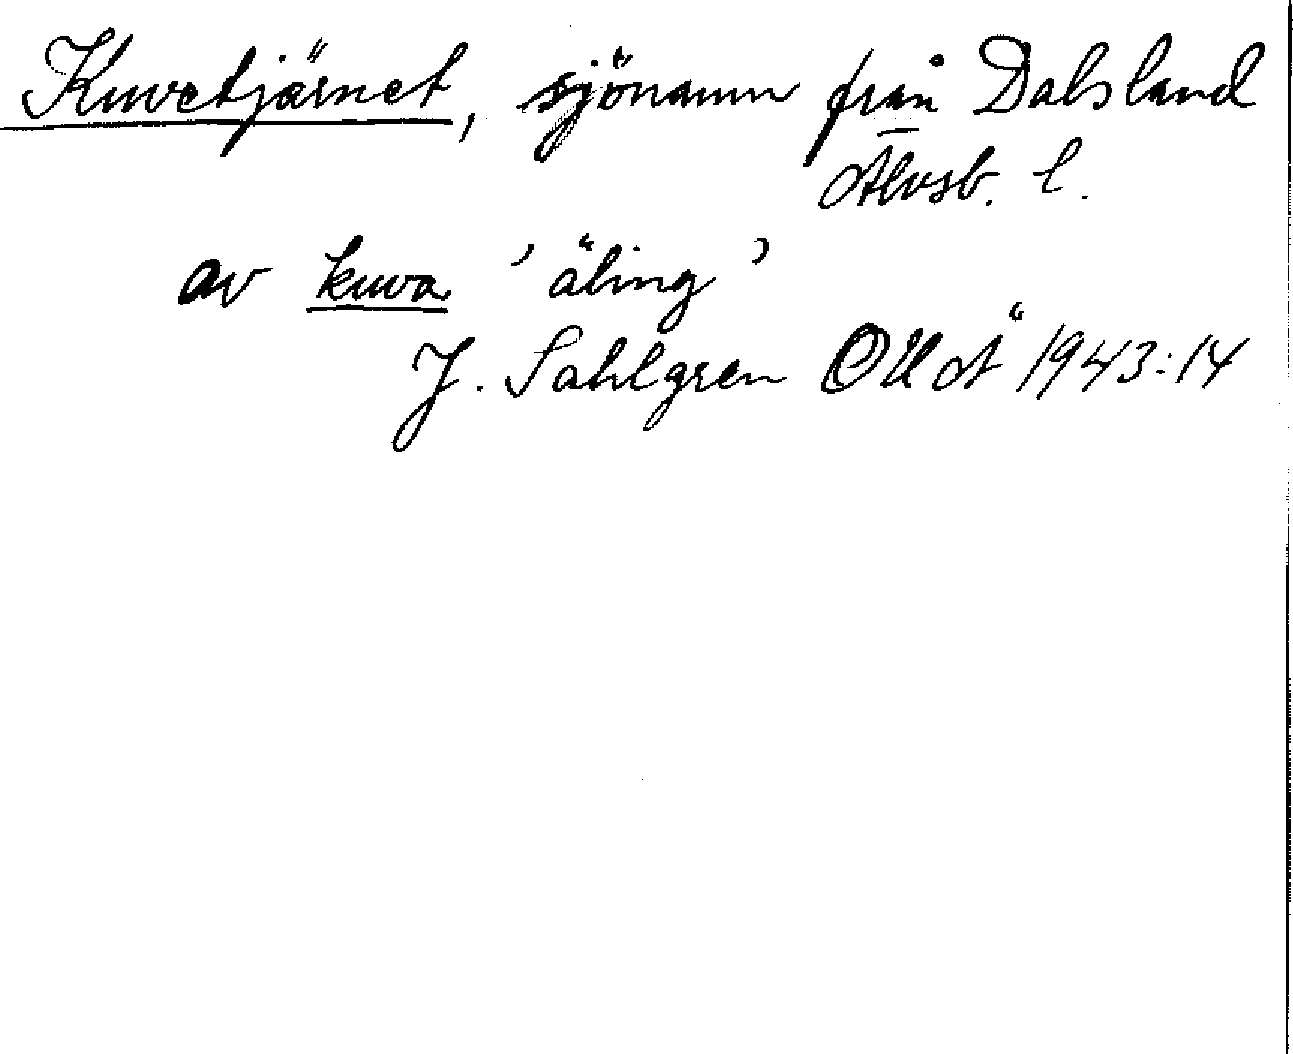 Kuvetjärnet, sjönamn från Dalsland
Älvsb. l.
av kuva 'äling'
J. Sahlgren OUÅ 1943:14